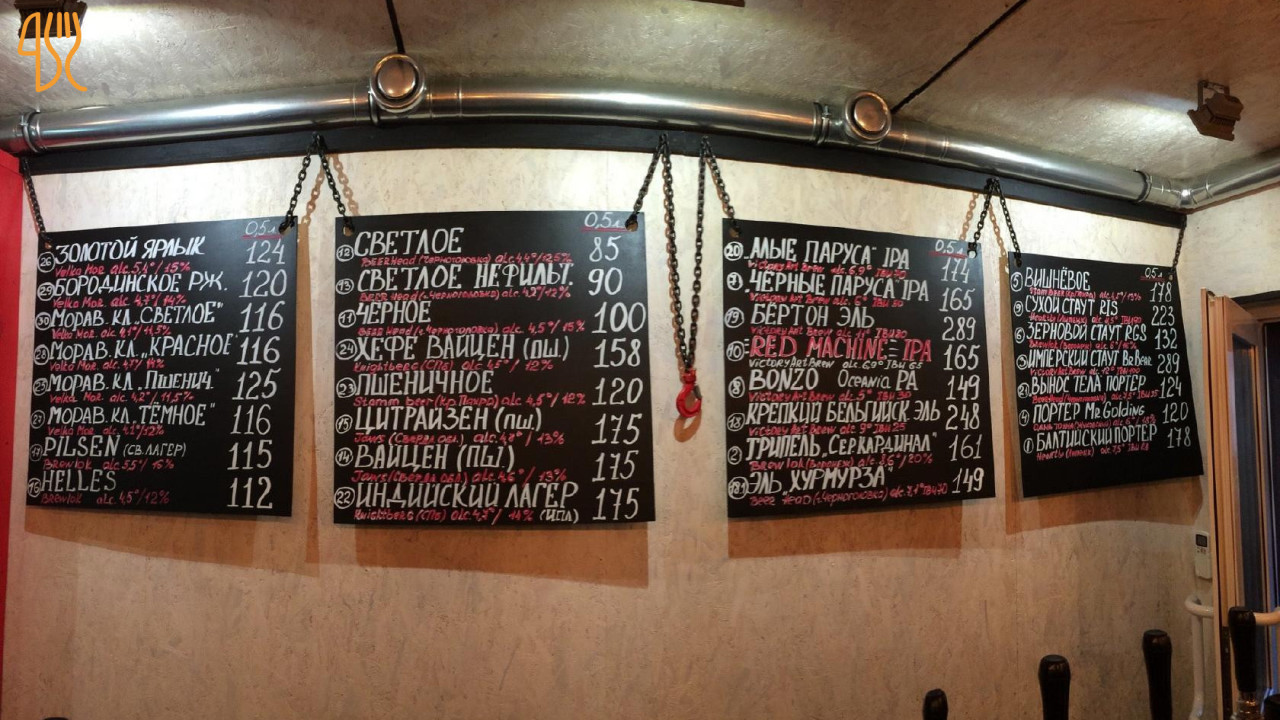 0,5л.
26 ЗОЛОТОЙ ЯРЛЫК 124
Velka Mor. alc. 5,4° / 15%
БОРОДИНСКОЕ РЖ. 120
Velka Mor. alc. 4,7° / 14%
30 МОРАВ. КЛ. „СВЕТЛОЕ" 116
Velka Mor. alc. 4,1° / 11,5%
28 МОРАВ. КЛ. „КРАСНОЕ" 116
Velka Mor. alc. 4,7° / 14%
МОРАВ. КЛ. „ПШЕНИЧ." 125
Velka Mor. alc. 4,2° / 11,5%
МОРАВ. КЛ. „ТЁМНОЕ" 116
Velka Mor. alc. 4,1° / 12%
PILSEN (СВ. ЛАГЕР) 115
Brewlok alc. 5,5° / 15%
16 HELLES 112
Brewlok alc. 4,5° / 12%
0,5л.
12 СВЕТЛОЕ 85
BEERHead (г.Черноголовка) alc. 4,4° / 12,5%
13 СВЕТЛОЕ НЕФИЛЬТ. 90
BEER Head (г.Черноголовка) alc. 4,2° / 12%
11 ЧЁРНОЕ 100
BEER Head (г.Черноголовка) alc. 4,5° / 15%
24 ХЕФЕ ВАЙЦЕН (пш.) 158
Knightberg (СПб) alc. 4,5° / 12%
23 ПШЕНИЧНОЕ 120
Stamm beer (кр.Пахра) alc. 4,5° / 12%
15 ЦИТРАЙЗЕН (пш) 175
Jaws (Сверд. обл.) alc. 4,8° / 13%
14 ВАЙЦЕН (пш) 175
Jaws (Сверд. обл.) alc. 4,6° / 13%
22 ИНДИЙСКИЙ ЛАГЕР 175
Knightberg (СПб) alc. 4,7° / 14% (ИПЛ)
0,5л.
20 „АЛЫЕ ПАРУСА" IPA 174
Victory Art Brew alc. 6,9° IBU 70
„ЧЕРНЫЕ ПАРУСА" IPA 165
Victory Art Brew alc. 6° IBU 50
19 БЕРТОН ЭЛЬ 289
Victory Art Brew alc. 11°
10 RED MACHINE IPA 165
Victory Art Brew alc. 6,9° IBU 65
8 BONZO Oceania PA 149
Victory Art Brew alc. 5° IBU 30
18 КРЕПКИЙ БЕЛЬГИЙСК ЭЛЬ 248
Victory Art Brew alc. 9° IBU 25
2 ТРИПЕЛЬ „СЕР КАРДИНАЛ" 161
Brewlok alc. 8,6° / 20%
ЭЛЬ „ХУРМУРЗА" 149
Beer Head (г.Черноголовка) alc. 7,1° IBU 70
0,5л.
5 ВИШНЁВОЕ 178
9 СУХОЙ СТАУТ RIS 223
6 ЗЕРНОВОЙ СТАУТ RGS 132
ИМПЕРСКИЙ СТАУТ Be Bear 289
Victory Art Brew alc. 12°
21 ВЫНОС ТЕЛА ПОРТЕР 124
4 ПОРТЕР Mr Golding 120
1 БАЛТИЙСКИЙ ПОРТЕР 178